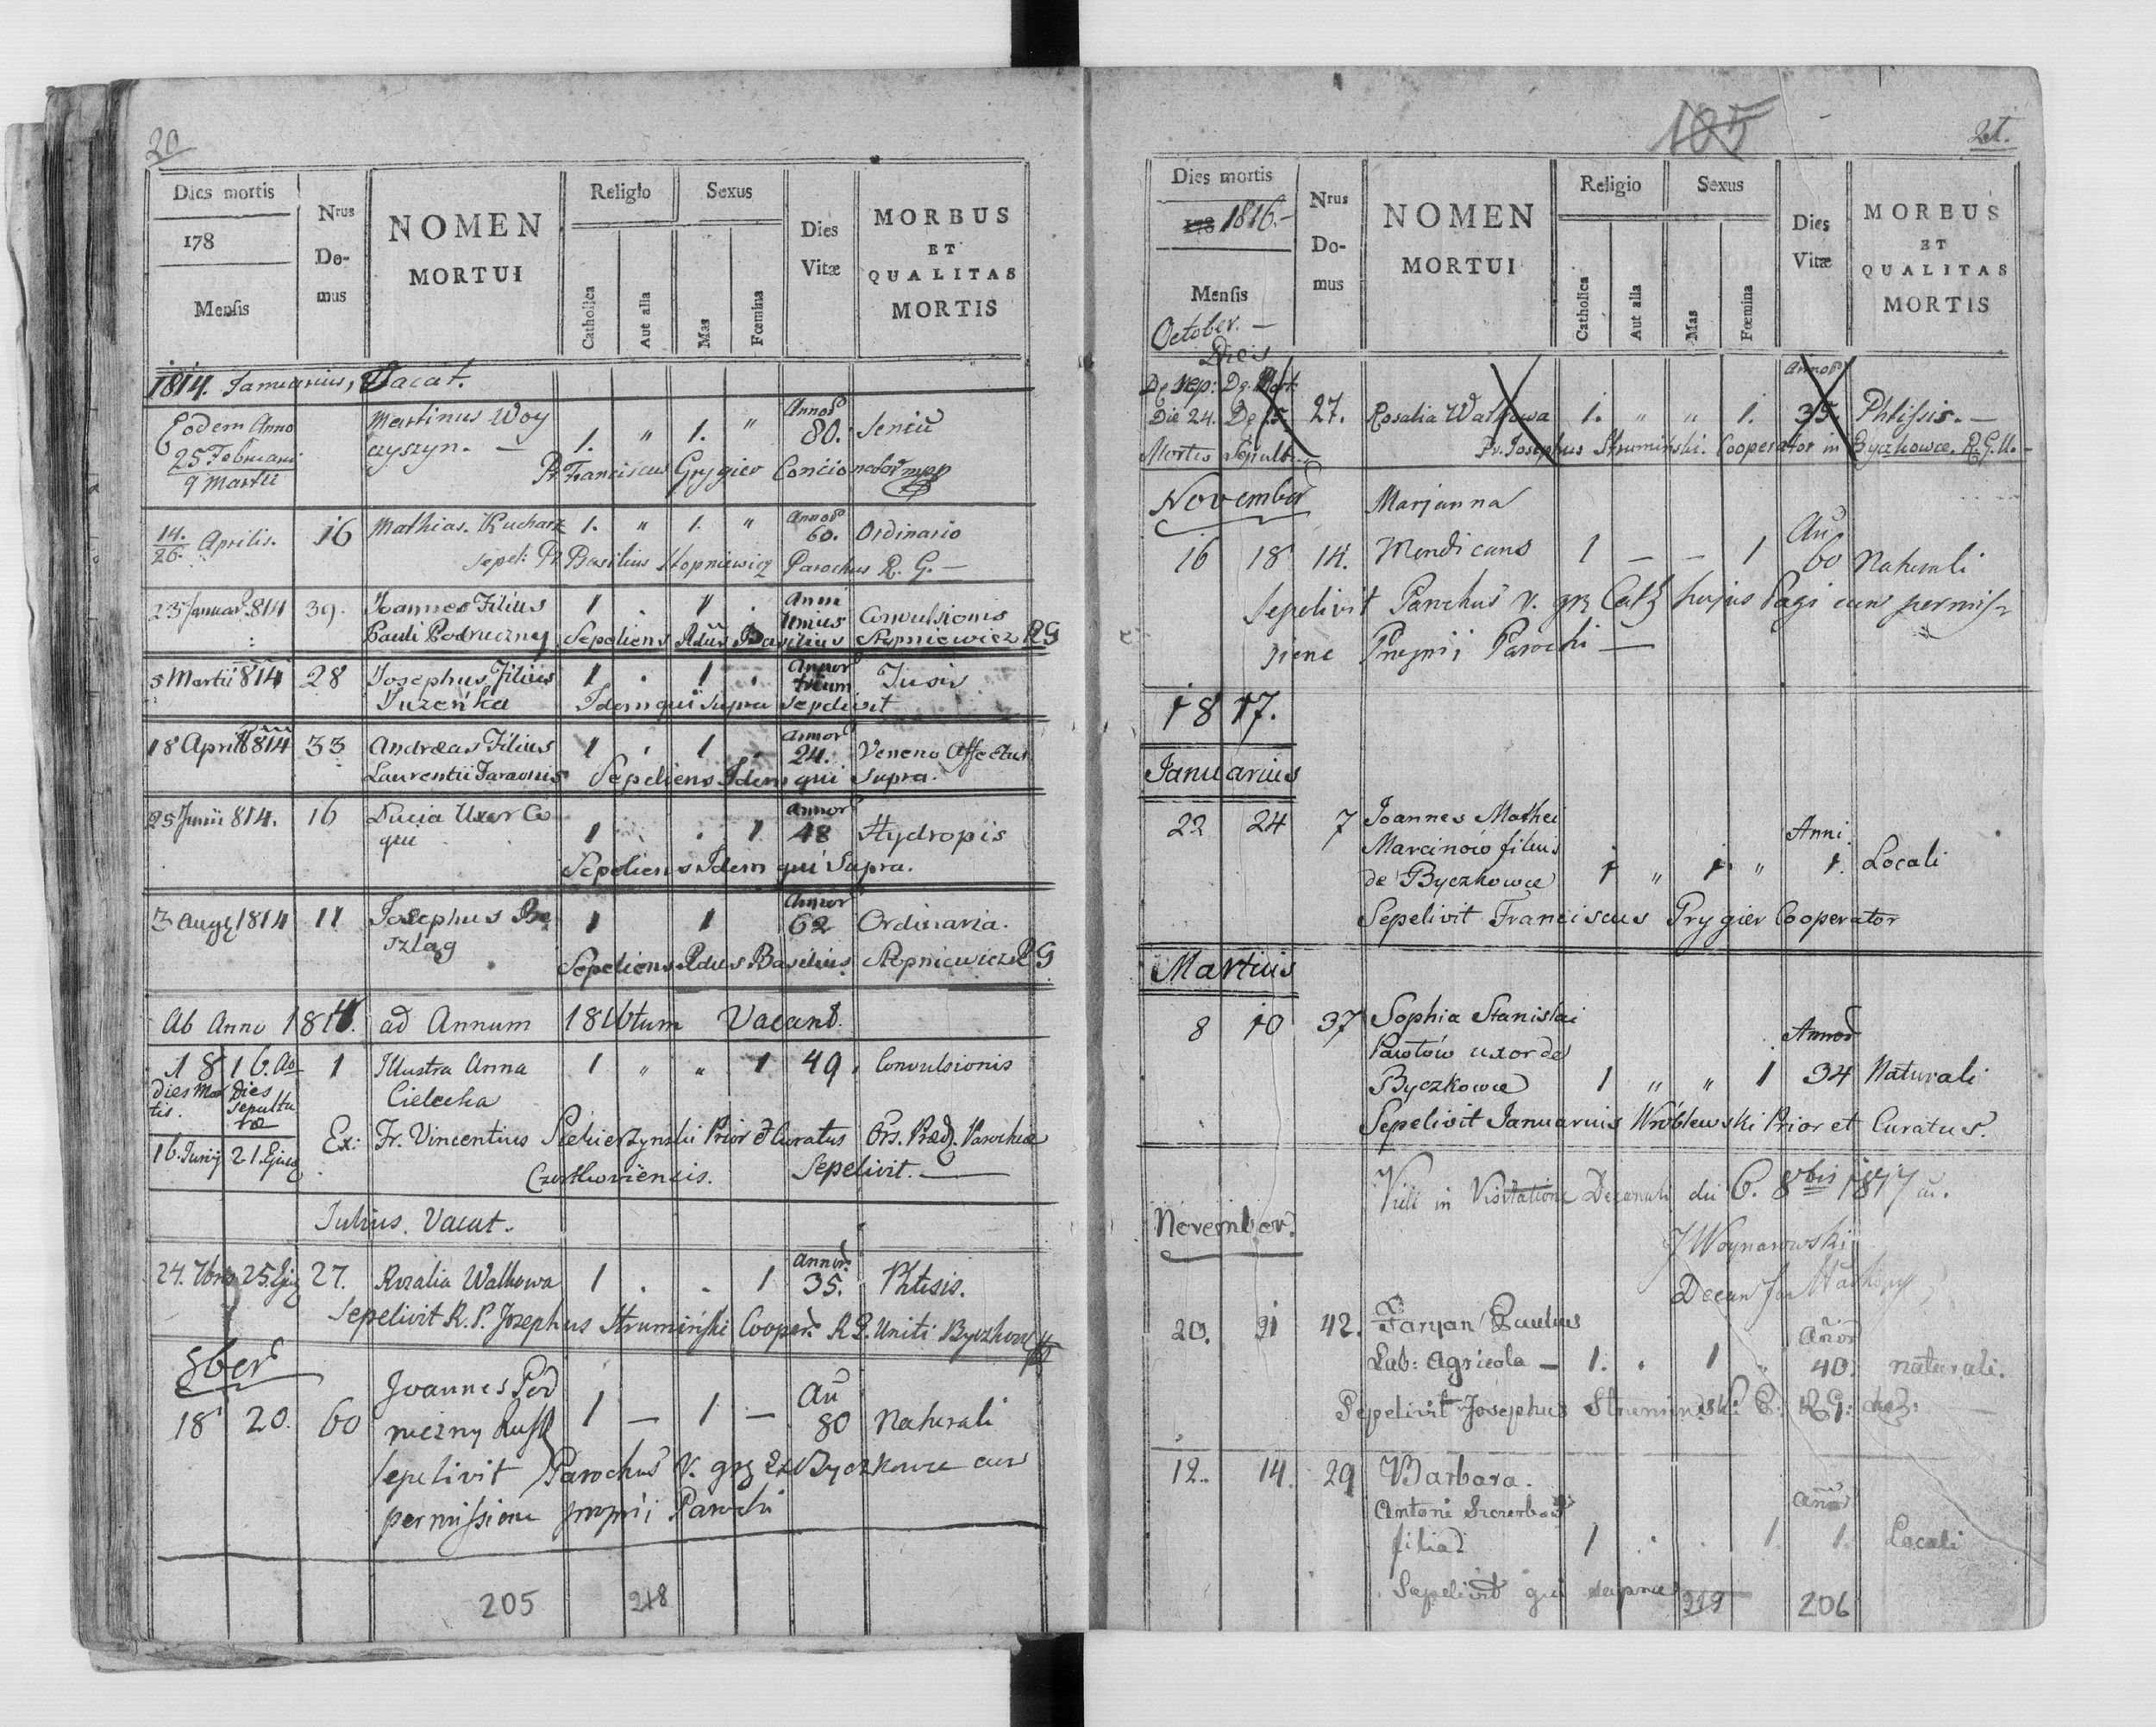 20
Dies mortis
178
Mensis
Nrus Do-mus
NOMEN MORTUI
Religio
Catholica
Aut alia
Sexus
Mas
Fœmina
Dies Vitæ
MORBUS ET QUALITAS MORTIS
1814. Januarius, Vacat.
Eodem Anno Martinus Woy Annor
25 Februarii czyszyn. — 1. " 1. " 80. Seniu
9 Martii Pr Franciscus Grygier Concionator mpp
14. Aprilis. 16 Mathias. Kucharz 1. " 1. " Annor 60. Ordinario
26. sepel: Pr Basilius Stopniewicz Parochus R. G. —
23 Januar. 814 39. Joannes Filius 1 . 1 . Anni Unius Convulsionis
Pauli Podruczny Sepeliens Rdus Basilius Stopniewicz RG
5 Martii 814 28 Josephus Filius 1 . 1 . Annor trium Tusis
Juzeńka Idem qui Supra Sepelivit
18 Aprilis 814 33 Andræas Filius 1 . 1 . Annor 24. Veneno Affectus
Laurentii Faraonis Sepeliens Idem qui Supra.
25 Junii 814. 16 Lucia Uxor Co Annor
qui 1 . . 1 48 Hydropis
Sepeliens Idem qui Supra.
3 Augi 1814 11 Josephus Be 1 1 Annor 62 Ordinaria.
szląg
Sepeliens Rdus Basilius Stopniewicz RG
Ab Anno 1814. ad Annum 1816tum Vacant.
1816. 1 Illustra Anna 1 " " 1 49. Convulsionis
dies Mor tis. dies sepultu ræ Cielecka
16. Junij 21. Ejusd Ex: Fr. Vincentius Prior et Curatus Ors. Præd. Parochiæ
Sepelivit. —
Julius. Vacat.
24. 7bris 25. Ejus 27. Rozalia Walkowa 1 . . 1 Annor. 35. Phtisis.
Sepelivit R. P. Josephus Strumiński Cooper. R G. Uniti Byczkow
8ber
Joannes Pod
18 20. 60 1 — 1 — An 80 Naturali
Sepelivit Parochus V. gr Ex Byczkowce cum
permissione proprii Parochi
205 218
105 21.
Dies mortis
178 1816. —
Mensis
October. —
Nrus Do-mus
NOMEN MORTUI
Religio
Catholica
Aut alia
Sexus
Mas
Fœmina
Dies Vitæ
MORBUS ET QUALITAS MORTIS
Dies Annor
Die 24. De 25. 27. Rosalia Walkowa 1. " " 1. 35. Phtissis. —
Mortis Sepult. Pr. Josephus Strumiński. Cooperator in Byczkowce. R. G. U. —
November Marjanna
16 18 14. Mendicans 1 — — 1 An 60 Naturali
Sepelivit Parochus r. gr Cath hujus Pagi cum permis
sione Proprii Parochi —
1817.
Januarius
22 24 7 Joannes Mathei
Marcinów filius Anni
de Byczkowce 1 " 1 " 1. Locali
Sepelivit Franciscus Grygier Cooperator
Martius
8 10 37 Sophia Stanislai
Pawłów uxor de Annor
Byczkowce 1 " " 1 34 Naturali
Sepelivit Januarius Wróblewski Prior et Curatus.
Vidi in Visitatione Decanali die 6. 8bris 1817 a.
November. J Woynarowski
20. 21 42. Faryan Paulus Añor
Lab: Agricola — 1. . 1 " 40. naturali.
Sepelivit Josephus Strumiński C. R G:
12. 14. 29 Barbara.
Antoni Szczerba Añor
filia 1 . . 1. 1. Locali
Sepelivit qui supra
219 206